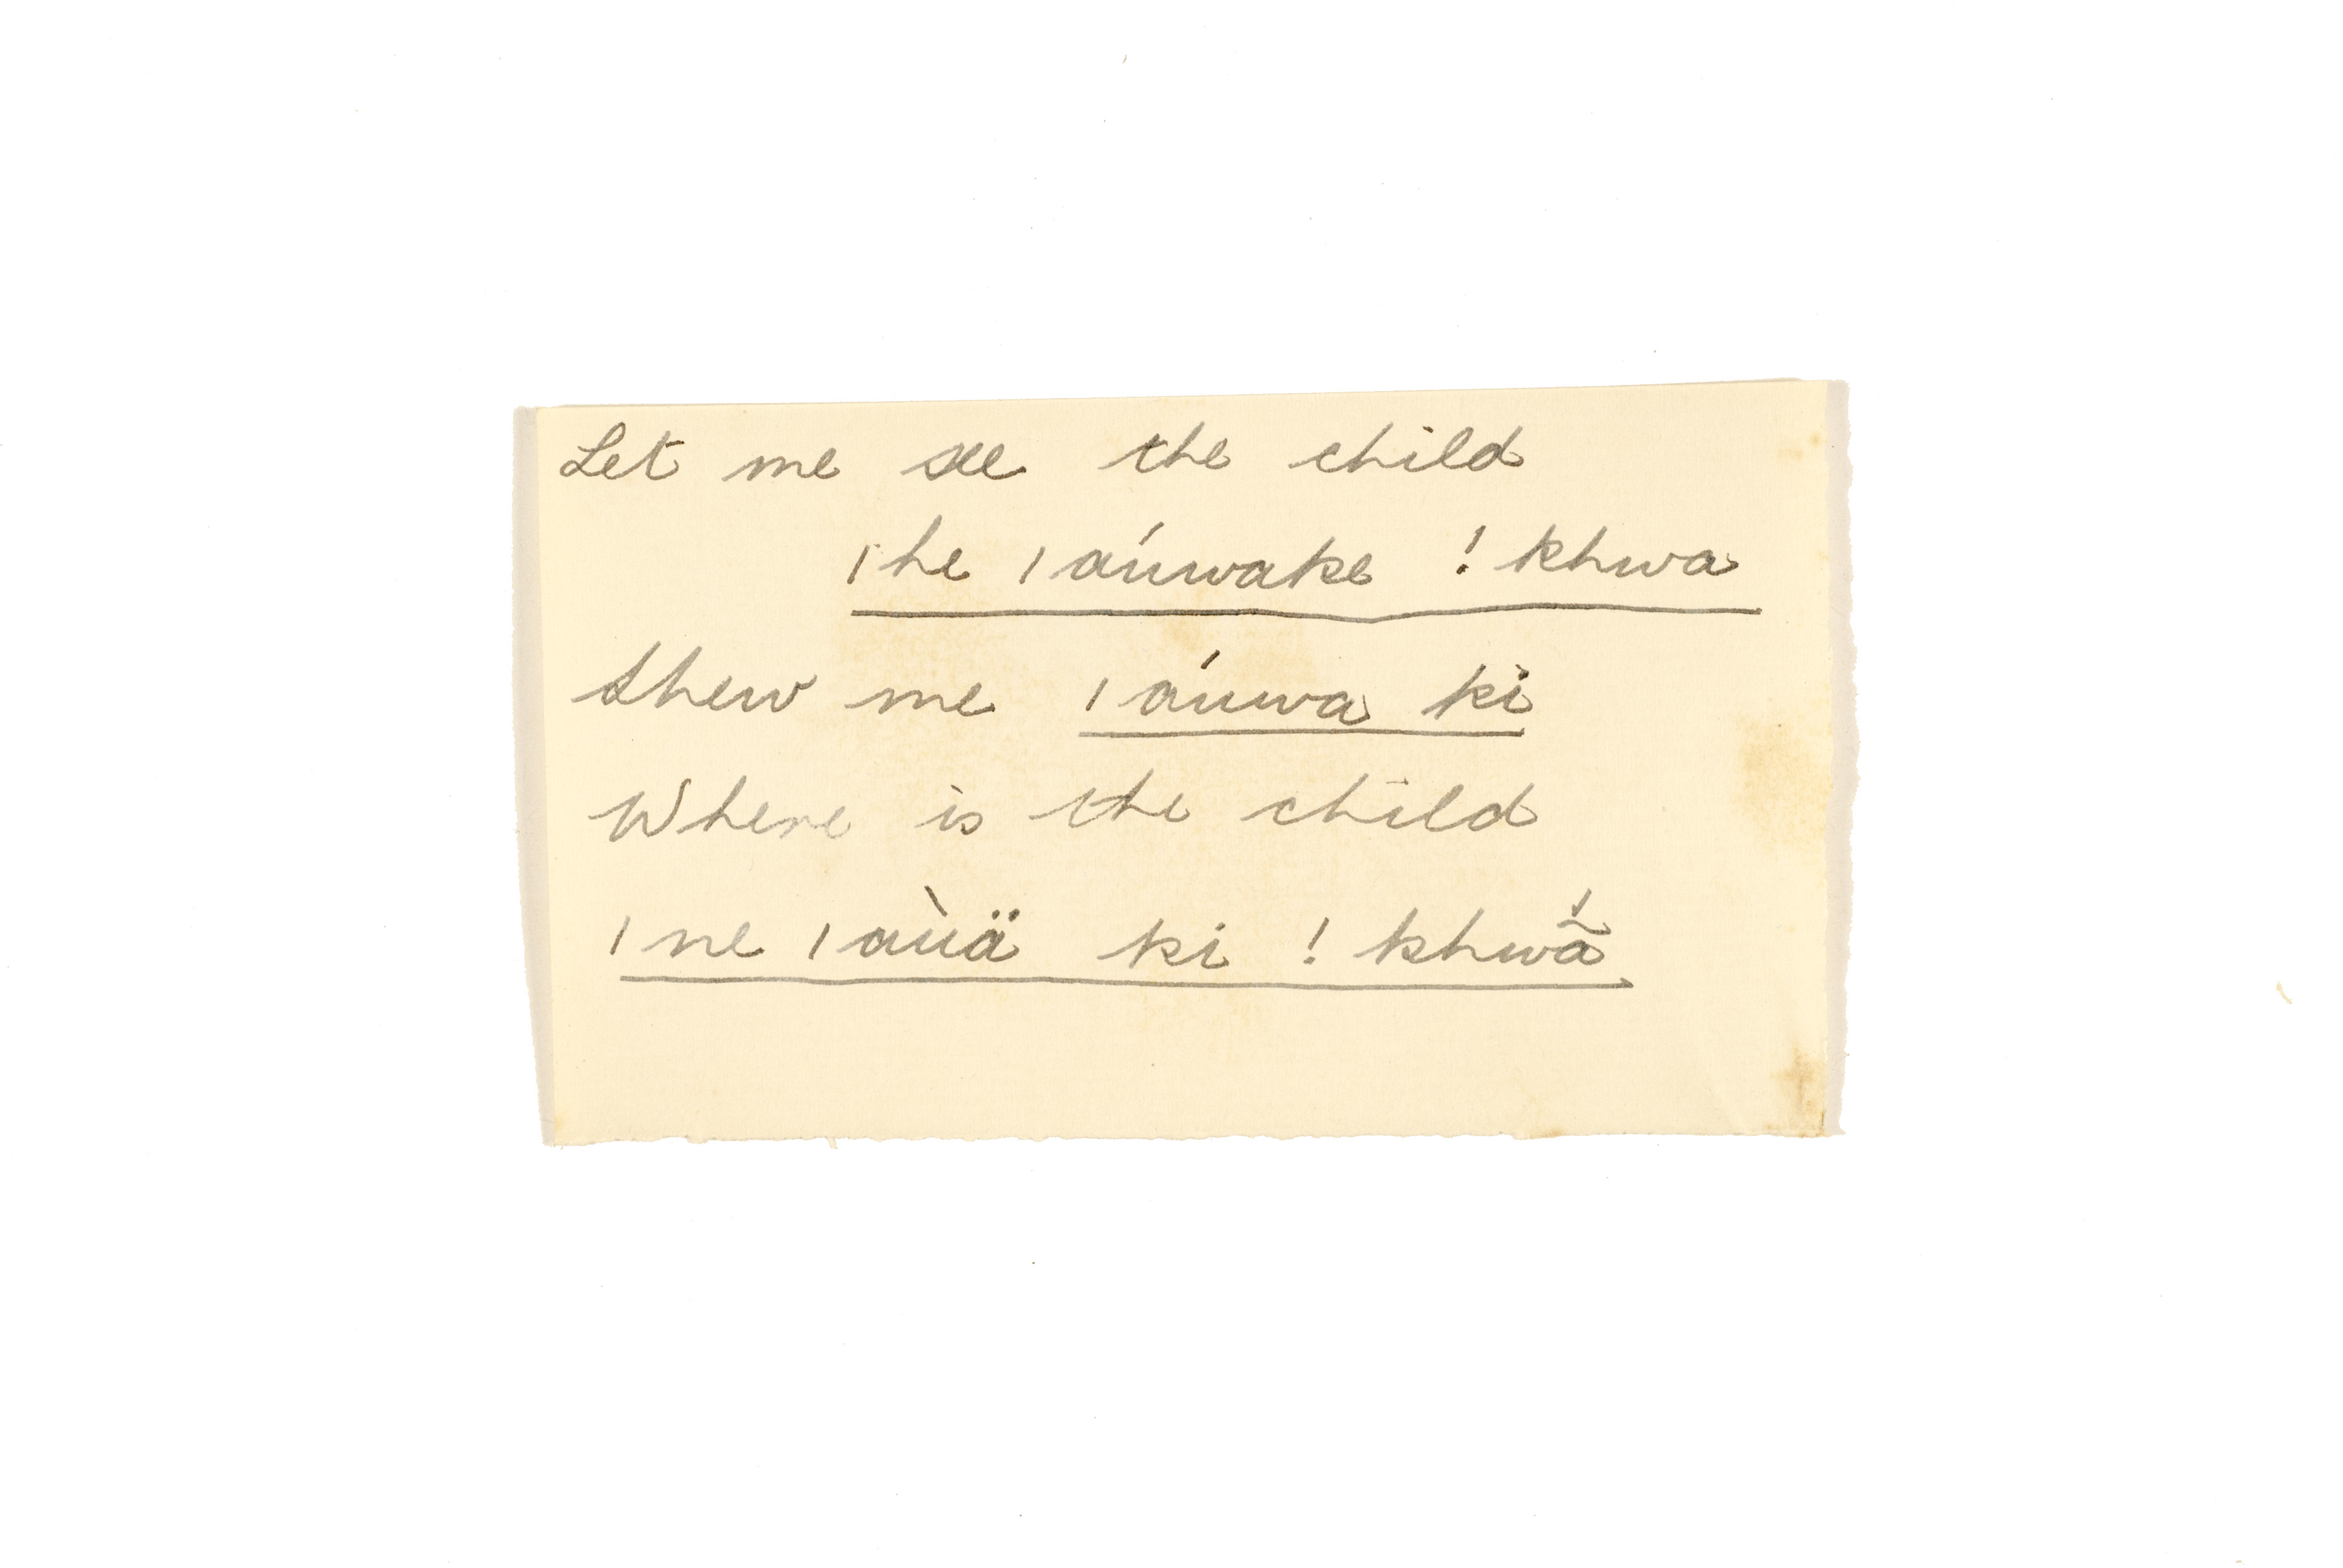 Let me see the child
ǀhe ǀaúwake !khwa
Shew me ǀaúwa ki
Where is the child
ǀne ǀauìä ki !khwã́